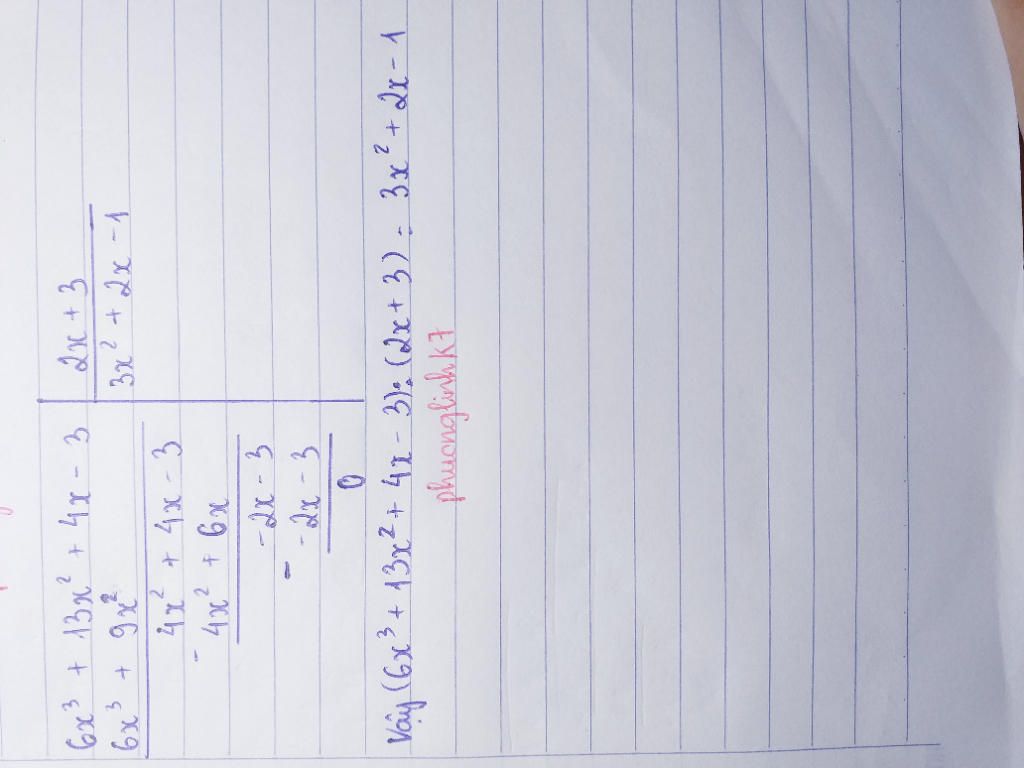 6x³ + 13x² + 4x - 3 | 2x + 3
6x³ + 9x² | 3x² + 2x - 1
4x² + 4x - 3
- 4x² + 6x
-2x - 3
- -2x - 3
0
Vậy (6x³ + 13x² + 4x - 3) : (2x + 3) = 3x² + 2x - 1
phuonglinhk7